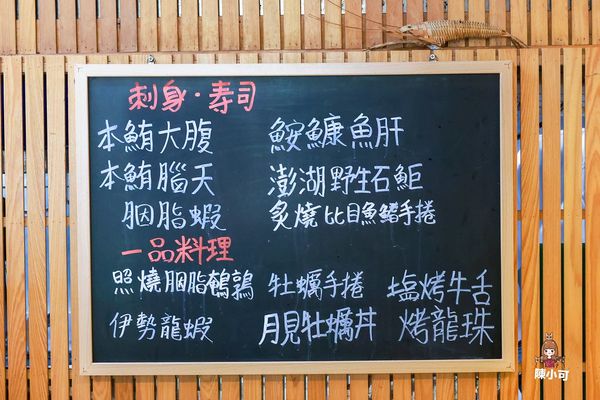 刺身·寿司
本鮪大腹 鮟鱇魚肝
本鮪腦天 澎湖野生石鮔
胭脂蝦 炙燒比目魚鰭手捲
一品料理
照燒胭脂鵪鶉 牡蠣手捲 塩烤牛舌
伊勢龍蝦 月見牡蠣丼 烤龍珠
陳小可